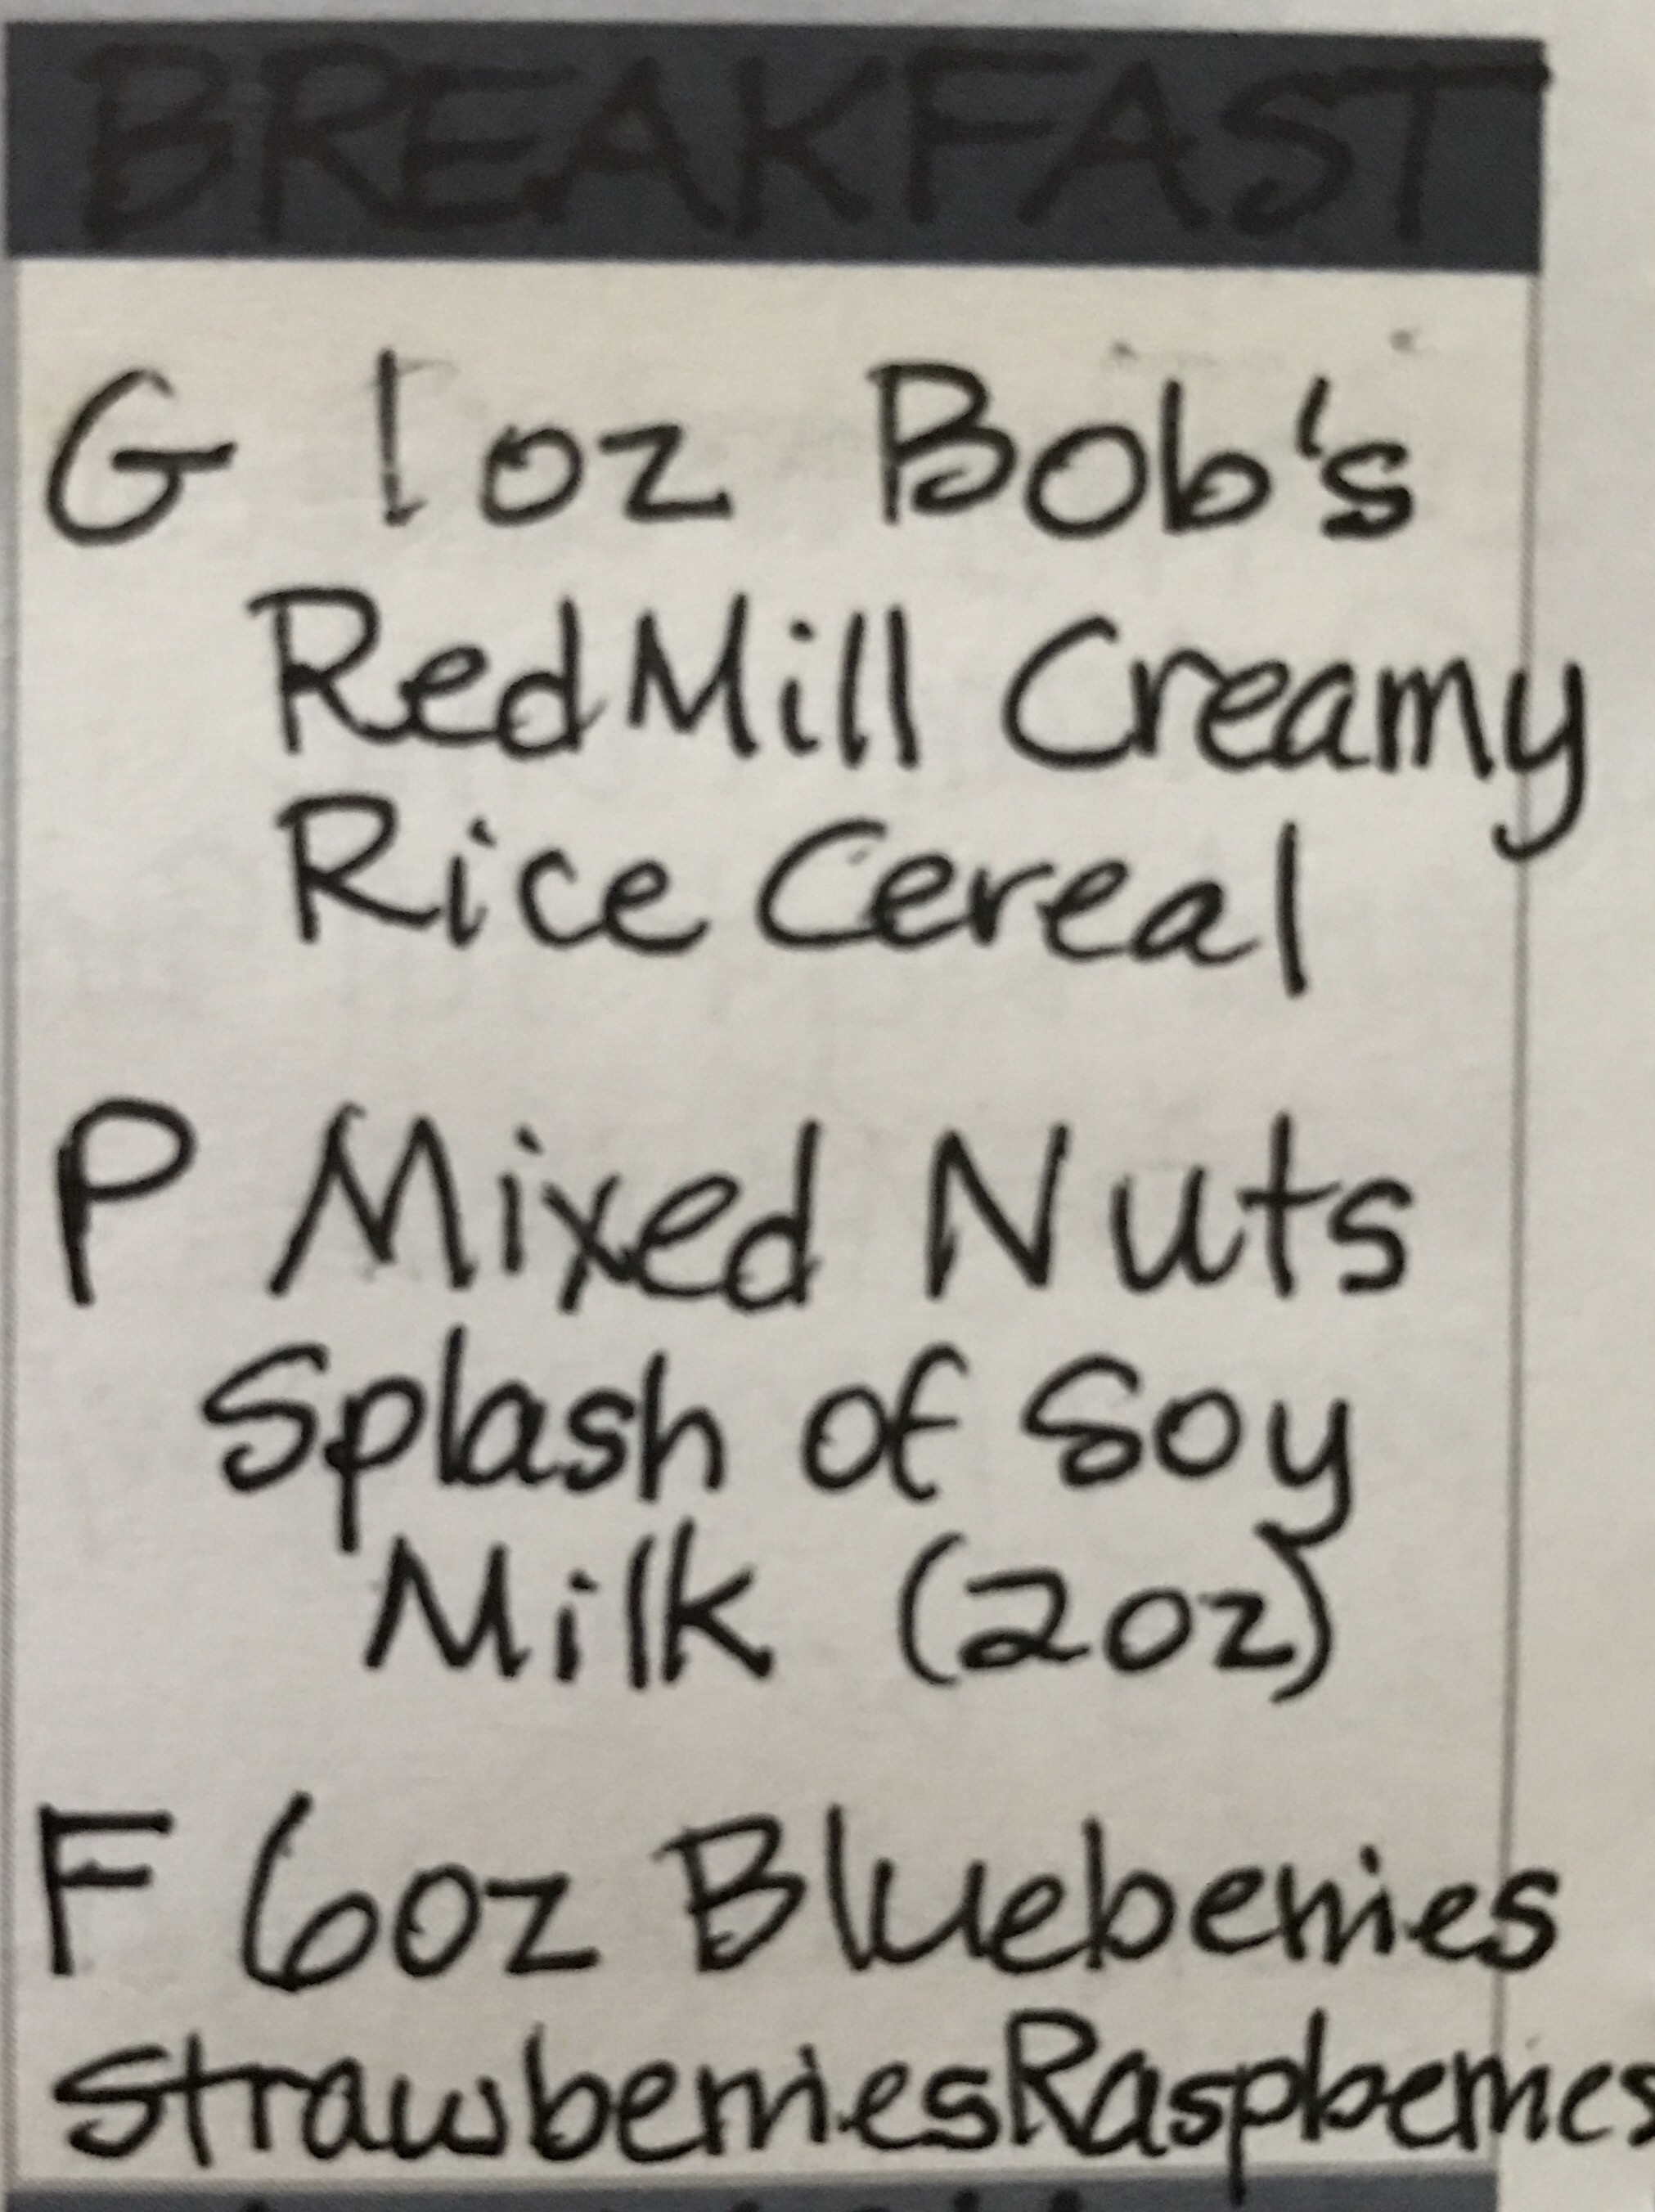 BREAKFAST
G 1 oz Bob's
Red Mill Creamy
Rice Cereal
P Mixed Nuts
Splash of Soy
Milk (2oz)
F 6oz Blueberries
Strawberries Raspberries